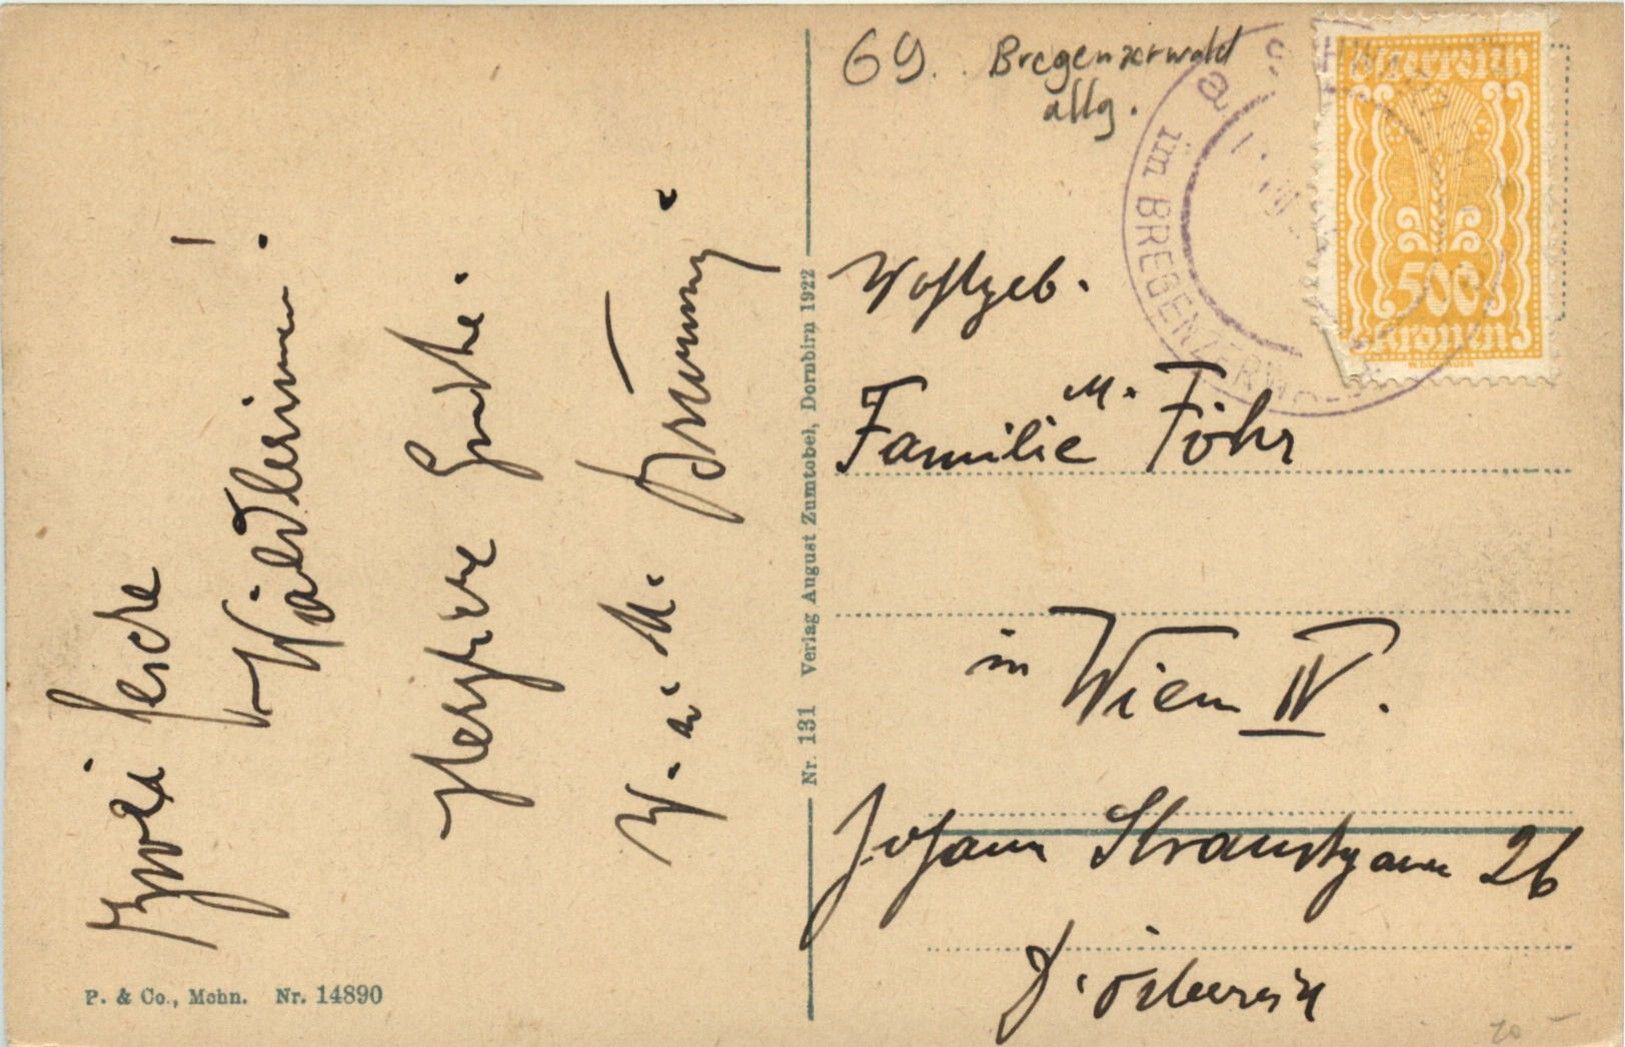 Zwei fesche
Wälderinnen!
Herzliche Grüße.
W. u. M.
Wohlgeb.
Familie M. Föhr
in Wien IV.
Johann Straussgasse 26
D. österreich
69. Bregenzerwald
allg.
im BREGENZERWALD
Österreich
500
Kronen
Nr. 131 Verlag August Zumtobel, Dornbirn 1922
P. & Co., Mchn. Nr. 14890